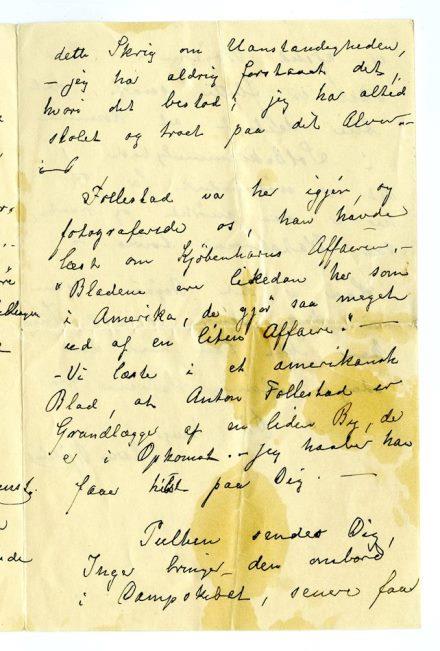 dette Skrig om Uanstændigheden,
– jeg har aldrig forstaaet det,
hvori det bestod, jeg har altid
stolet og troet paa dit Alvor. –
Follestad var her igjen, og
fotograferede os, han havde
læst om Kjøbenhavns Affæren. –
"Bladene ere ligedan her som
i Amerika, de gjør saa meget
ud af en liten Affære". –
– Vi læste i et amerikansk
Blad, at Anton Follestad er
Grundlægger af en liden By, de
er i Opkomst. – Jeg haaber han
faar hilst paa Dig. –
sendes Dig,
Inger bringer den ombord
i Dampskibet, senere faar